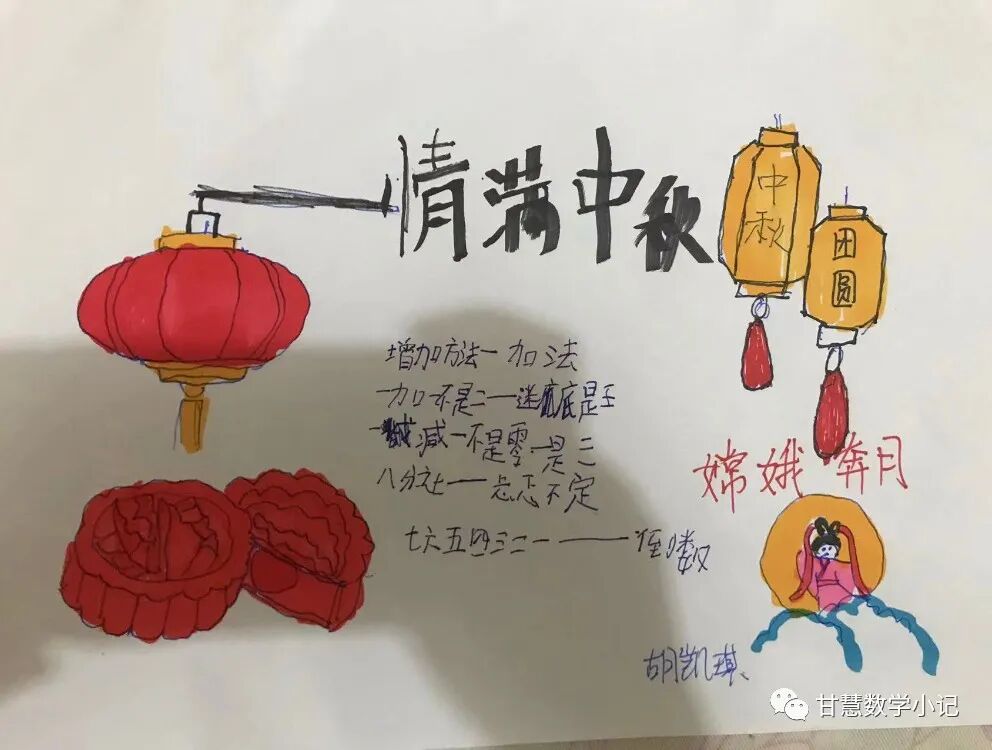 情满中秋
中秋
团圆
增加方法一加法
一加一不是二——迷底是王
减一不是零是二
八分之一——忐忑不定
七六五四三二一——倒数
嫦娥奔月
胡凯琪、
甘慧数学小记